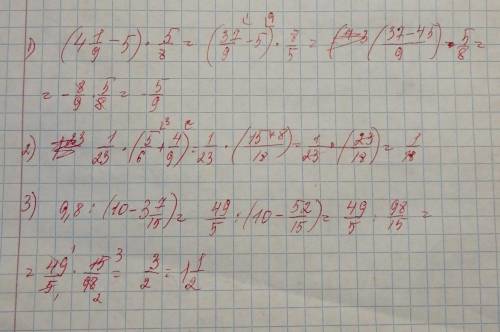 1) (4 1/9 - 5) · 5/8 = (37/9 - 5) · 5/8 = (37-45)/9 · 5/8 =
= -8/9 · 5/8 = -5/9
2) 1/23 · (5/6 + 4/9) = 1/23 · (15+8)/18 = 1/23 · (23/18) = 1/18
3) 9,8 : (10 - 3 7/15) = 49/5 : (10 - 52/15) = 49/5 : 98/15 =
= 49/5 · 15/98 = 3/2 = 1 1/2